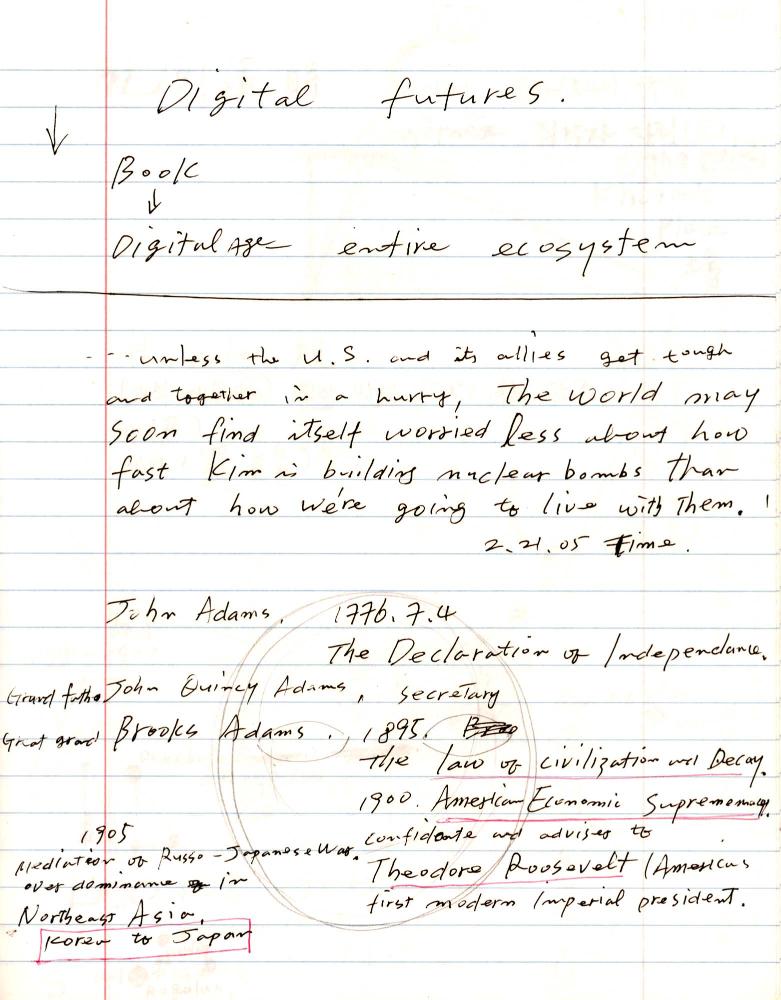 Digital futures.
Book
Digital Age entire ecosystem
--- unless the U.S. and its allies get tough
and together in a hurry, The world may
soon find itself worried less about how
fast Kim is building nuclear bombs than
about how we're going to live with Them. '
2.21.05 Time.
John Adams. 1776.7.4
The Declaration of Independance.
Grand father John Quincy Adams, secretary
Great grand Brooks Adams. 1895.
The law of civilization and Decay.
1900. American Economic Supremomacy.
confidante and adviser to
Theodore Roosevelt / America's
first modern Imperial president.
1905
Mediation of Russo-Japanese War.
over dominance in
Northeast Asia,
Korea to Japan